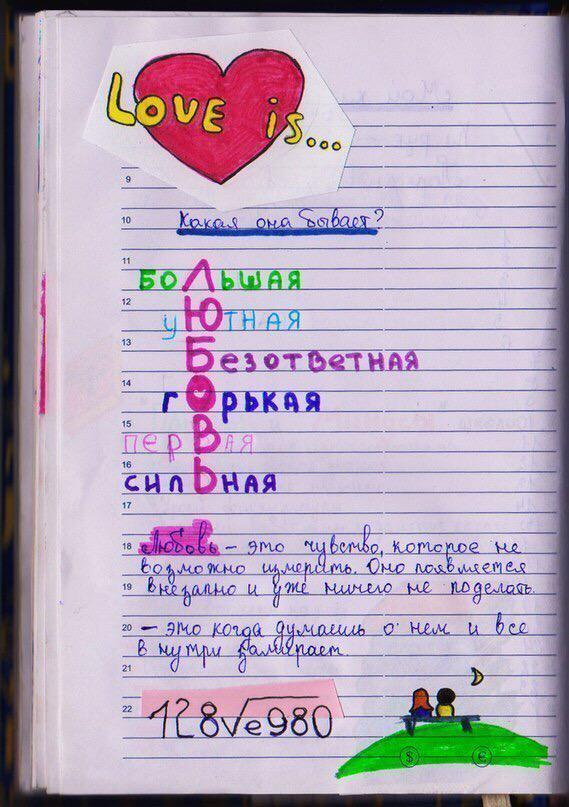 LOVE is...
9
10 Какая она бывает?
11
боЛьшая
12
уЮтная
13
Безответная
14
гОрькая
15
перВая
16
силЬная
17
18 Любовь – это чувство, которое не
возможно измерить. Оно появляется
19 внезапно и уже ничего не поделать.
20 – это когда думаешь о нем и все
в нутри замирает
21
22 128√e980
$ €